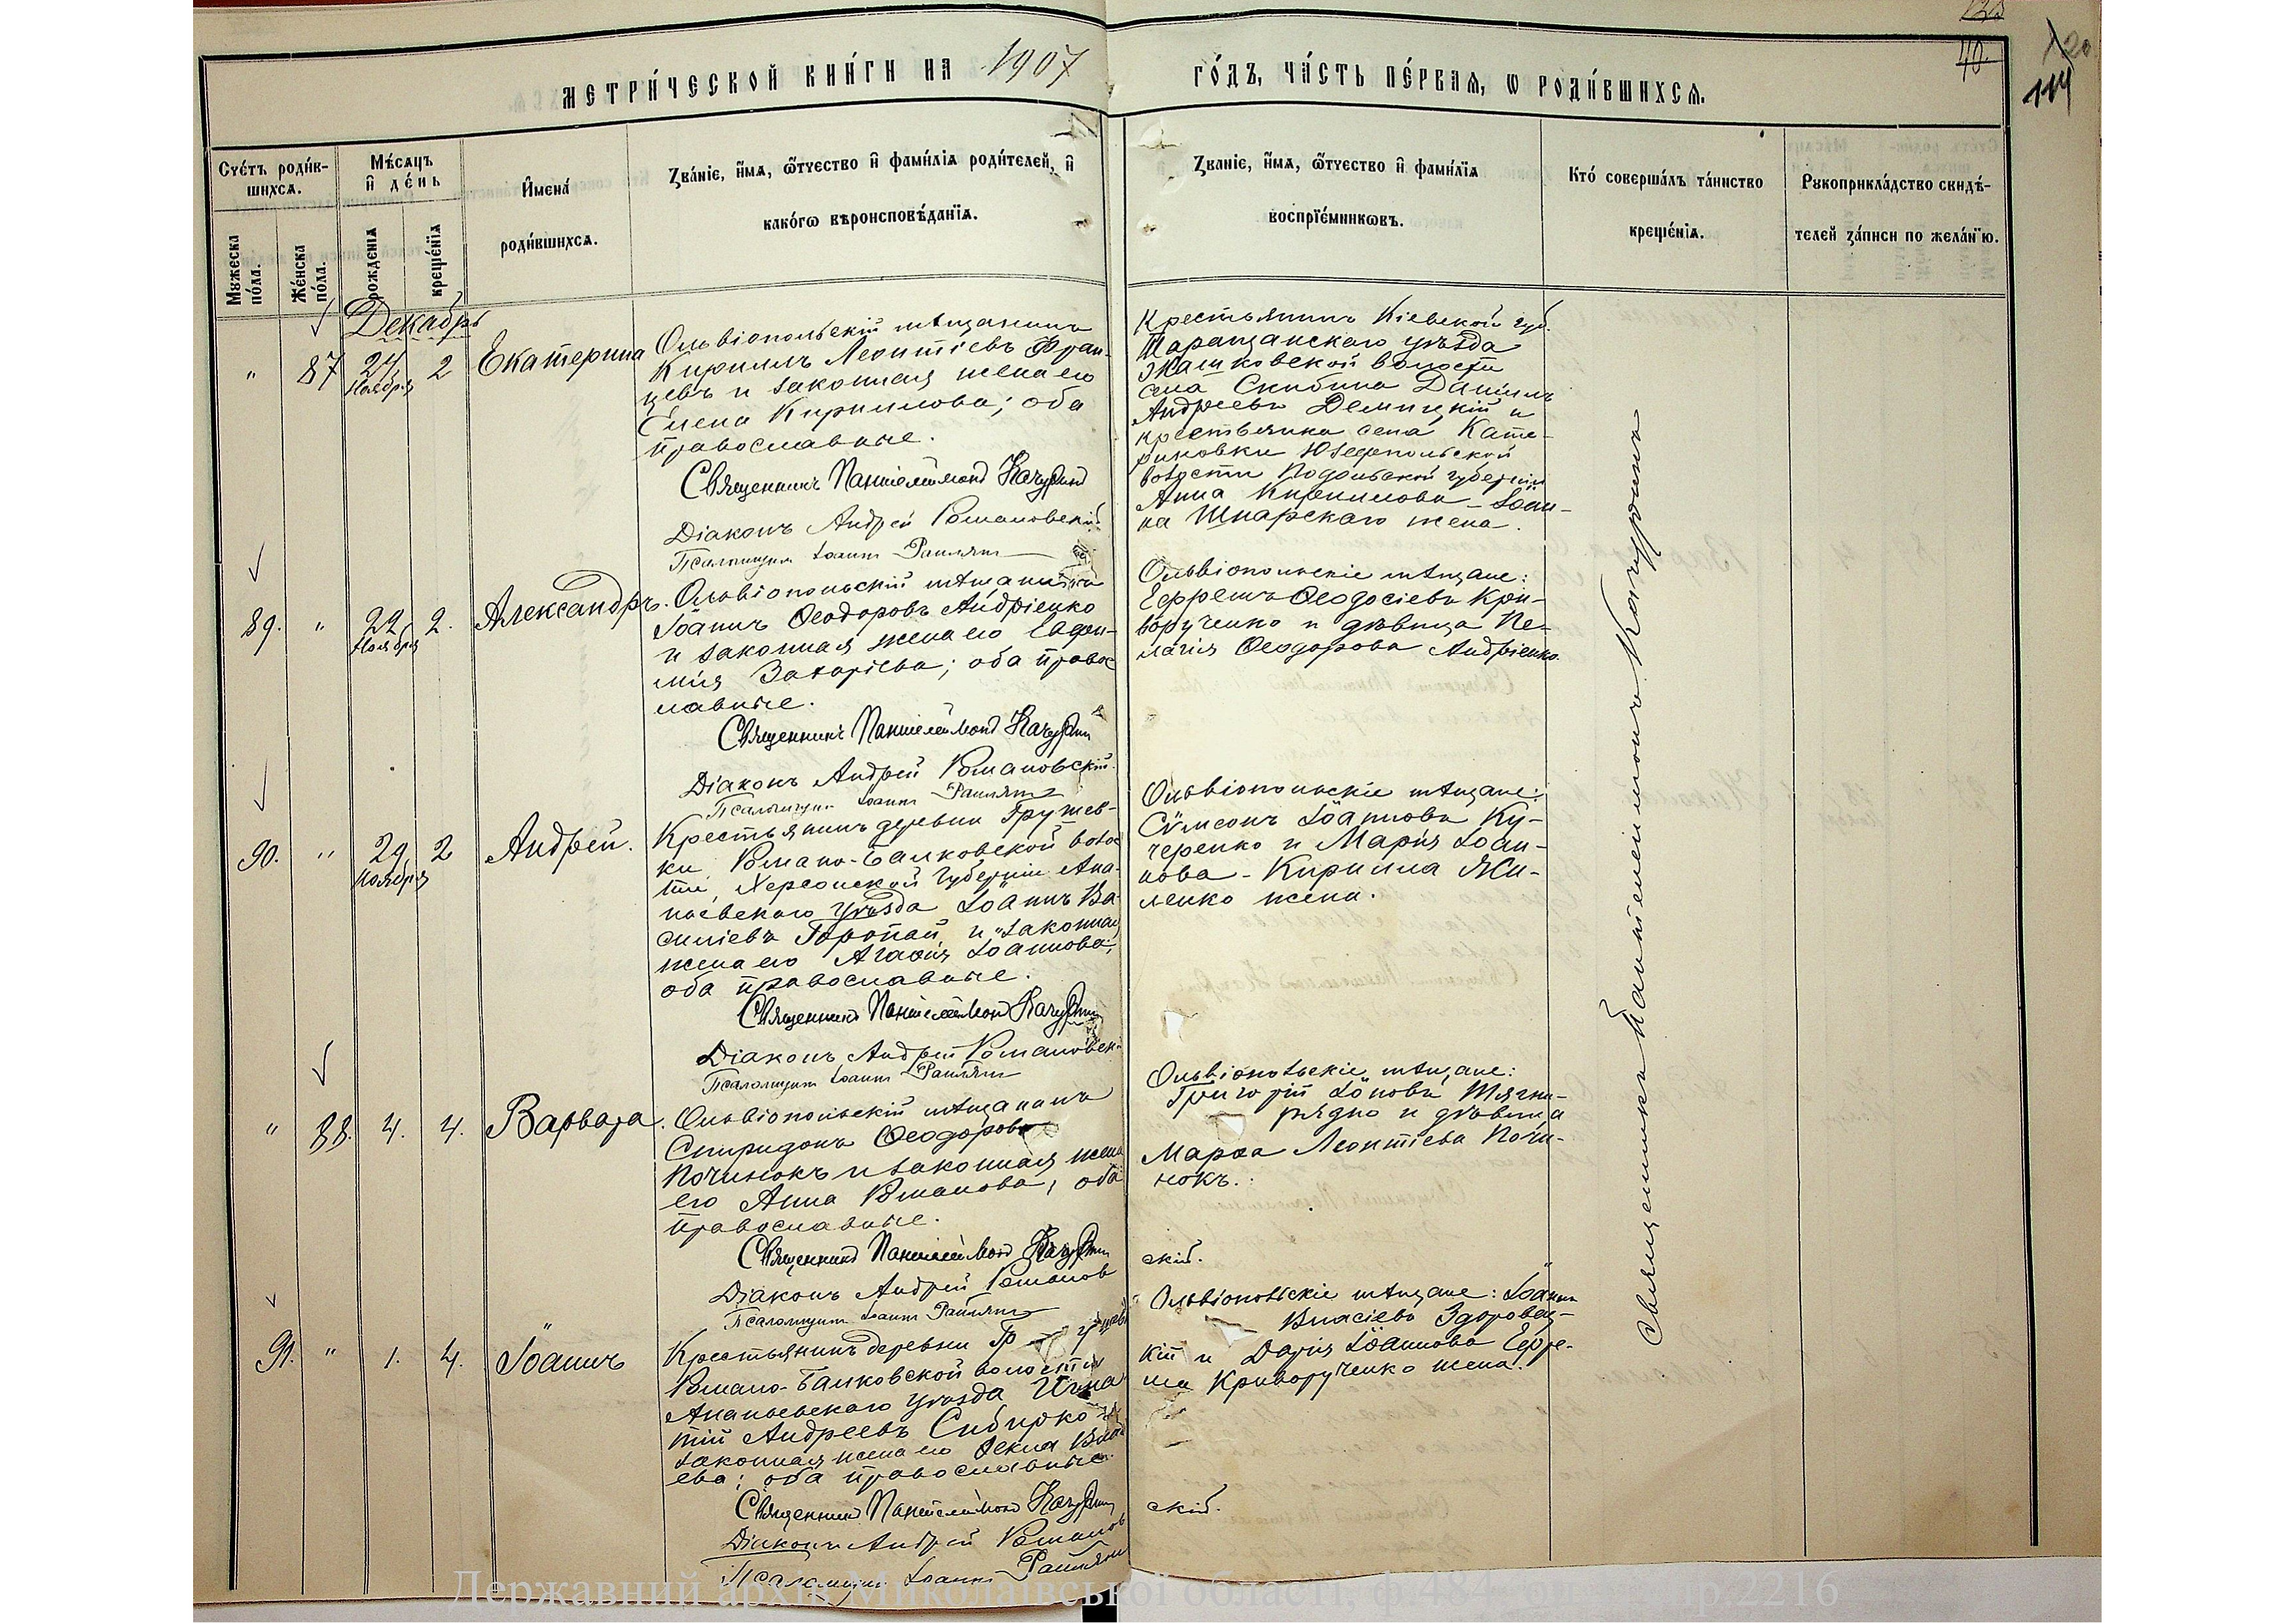 МЕТРИ́ЧЕСКОЙ КНИ́ГИ НА 1907 ГО́ДЪ, ЧА́СТЬ ПЕ́РВАѦ, Ѡ РОДИ́ВШИХСѦ.
40.
114
Сче́тъ роди́вшихсѧ.
Мꙋжеска по́ла.
Же́нска по́ла.
Мѣ́сѧцъ и҆ де́нь
рожденїѧ
креще́нїѧ
И҆мена́ роди́вшихсѧ.
Зва́нїе, и҆́мѧ, ѻ҆́тчество и҆ фами́лїѧ роди́телей, и҆
како́гѡ вѣроисповѣ́данїѧ.
Зва́нїе, и҆́мѧ, ѻ҆́тчество и҆ фами́лїѧ
воспрїе́мникѡвъ.
Кто́ соверша́лъ та́инство
креще́нїѧ.
Рꙋкоприкла́дство свидѣ́-
телей за́писи по жела́нїю.
Декабрь
" 87 24 Ноября 2 Екатерина
Ольвіопольскій мѣщанинъ
Кириллъ Леонтіевъ Фран-
цевъ и законная жена его
Елена Кириллова; оба
православные.
Священникъ Пантелеймонъ Качуринъ
Діаконъ Андрей Романовскій
Псаломщикъ Іоаннъ
Крестьянинъ Кіевской губ.
Таращанскаго уѣзда
Жашковской волости
села Скибина Даніилъ
Андреевъ Демицкій и
крестьянка села Кате-
риновки Юзефпольской
волости Подольской губерніи
Анна Кириллова - Іоан-
на Шпарскаго жена.
89. " 22 Ноября 2. Александръ.
Ольвіопольскій мѣщанинъ
Іоаннъ Ѳеодоровъ Андріенко
и законная жена его Евфи-
мія Захаріева; оба право-
славные.
Священникъ Пантелеймонъ Качуринъ
Діаконъ Андрей Романовскій.
Псаломщикъ Іоаннъ
Ольвіопольскіе мѣщане:
Ефремъ Ѳеодосіевъ Кри-
ворученко и дѣвица Пе-
лагія Ѳеодорова Андріенко.
90. " 29 Ноября 2 Андрей.
Крестьянинъ деревни Грушев-
ки, Романо-Балковской волос-
ти, Херсонской губерніи Ана-
ньевскаго уѣзда Іоаннъ Ва-
силіевъ Горопай и законная
жена его Агаѳія Іоаннова;
оба православные.
Священникъ Пантелеймонъ Качуринъ
Діаконъ Андрей Романовскій
Псаломщикъ Іоаннъ
Ольвіопольскіе мѣщане:
Сѵмеонъ Іоанновъ Ку-
черенко и Марія Іоан-
нова - Кирилла Жи-
ленко жена.
" 88. 4. 4. Варвара.
Ольвіопольскій мѣщанинъ
Спиридонъ Ѳеодоровъ
Починокъ и законная жена
его Анна Романова; оба
православные.
Священникъ Пантелеймонъ Качуринъ
Діаконъ Андрей Романов
скій.
Псаломщикъ Іоаннъ
Ольвіопольскіе мѣщане:
Григорій Іоновъ Тягни-
рядно и дѣвица
Марѳа Леонтіева Почи-
нокъ.
91. " 1. 4. Іоаннъ
Крестьянинъ деревни
Романо-Балковской волости
Ананьевскаго уѣзда Игна-
тій Андреевъ Сибирко
законная жена его Ѳекла
ева; оба православные.
Священникъ Пантелеймонъ Качуринъ
Діаконъ Андрей Романов
скій.
Псаломщикъ Іоаннъ
Ольвіопольскіе мѣщане: Іоаннъ
Власіевъ Здоровец-
кій и Дарія Іоаннова Ефре-
ма Криворученко жена.
Священникъ Пантелеймонъ Качуринъ
Державний архів Миколаївської області, ф. 2216